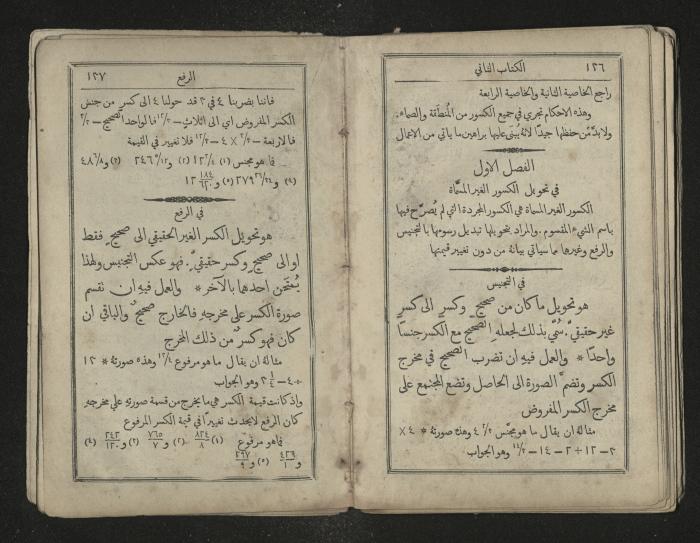 ١٢٦
الكتاب الثاني
راجع الخاصية الثانية والخاصية الرابعة
وهذه الاحكام تجري في جميع الكسور من المُنطَقة والصماء.
ولا بدَّ من حفظها جيدًا لانهُ يبنى عليها براهين ما ياتي من الاعمال
الفصل الاول
في تحويل الكسور الغير المسمَّاة
الكسور الغير المسماة هي الكسور المجردة التي لم يُصرَّح فيها
باسم الشيء المقسوم. والمراد بتحويلها تبديل رسومها بالتجنيس
والرفع وغيرها مما سياتي بيانهُ من دون تغيير قيمتها
في التجنيس
هو تحويل ما كان من صحيحٍ وكسرٍ الى كسرٍ
غير حقيقيٍّ. سُمّي بذلك لجعلهِ الصحيح مع الكسر جنسًا
واحدًا * والعمل فيهِ ان تضرب الصحيح في مخرج
الكسر وتضمَّ الصورة الى الحاصل وتضع المجتمع على
مخرج الكسر المفروض
مثالهُ ان يقال ما هو مجنَّس ٤ ٢/٣ وهذه صورتهُ * ٤ ×
٣ – ١٢ + ٢ – ١٤ – ١٤/٣ وهو الجواب
الرفع
١٢٧
فاننا بضربنا ٤ في ٣ قد حولنا ٤ الى كسرٍ من جنس
الكسر المفروض اي الى اثلاثٍ – ١٢/٣ فالواحد الصحيح – ٣/٣
فالاربعة – ٣/٣ × ٤ – ١٢/٣ فلا تغيير في القيمة
في الرفع
هو تحويل الكسر الغير الحقيقي الى صحيحٍ فقط
او الى صحيحٍ وكسرٍ حقيقيٍّ. فهو عكس التجنيس ولهذا
يُمتَحن احدهما بالآخر * والعمل فيهِ ان نقسم
صورة الكسر على مخرجهِ فالخارج صحيحٌ والباقي ان
كان فهو كسرٌ من ذلك المخرج
مثالهُ ان يقال ما هو مرفوع ١٢/٤ وهذه صورتهُ * ١٢
وهو الجواب
واذ كانت قيمة الكسر هي ما يخرج من قسمة صورتهِ على مخرجهِ
كان الرفع لا يحدث تغييرًا في قيمة الكسر المرفوع
فما هو مرفوع (١) ٨٢٤/٨ (٢) و ٧٦٥/٧ (٣) و ٢٤٣/١٢٠ (٤)